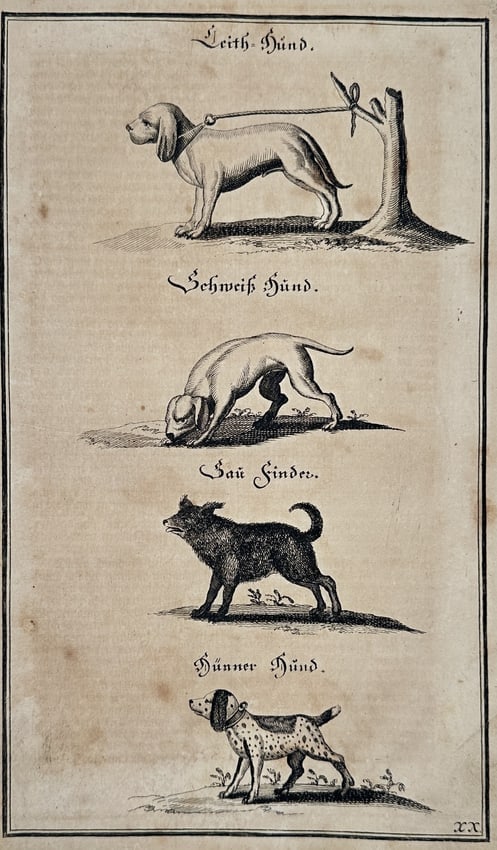 Leith-Hůnd.
Schweiß Hůnd.
Saů Finder.
Hünner Hůnd.
XX